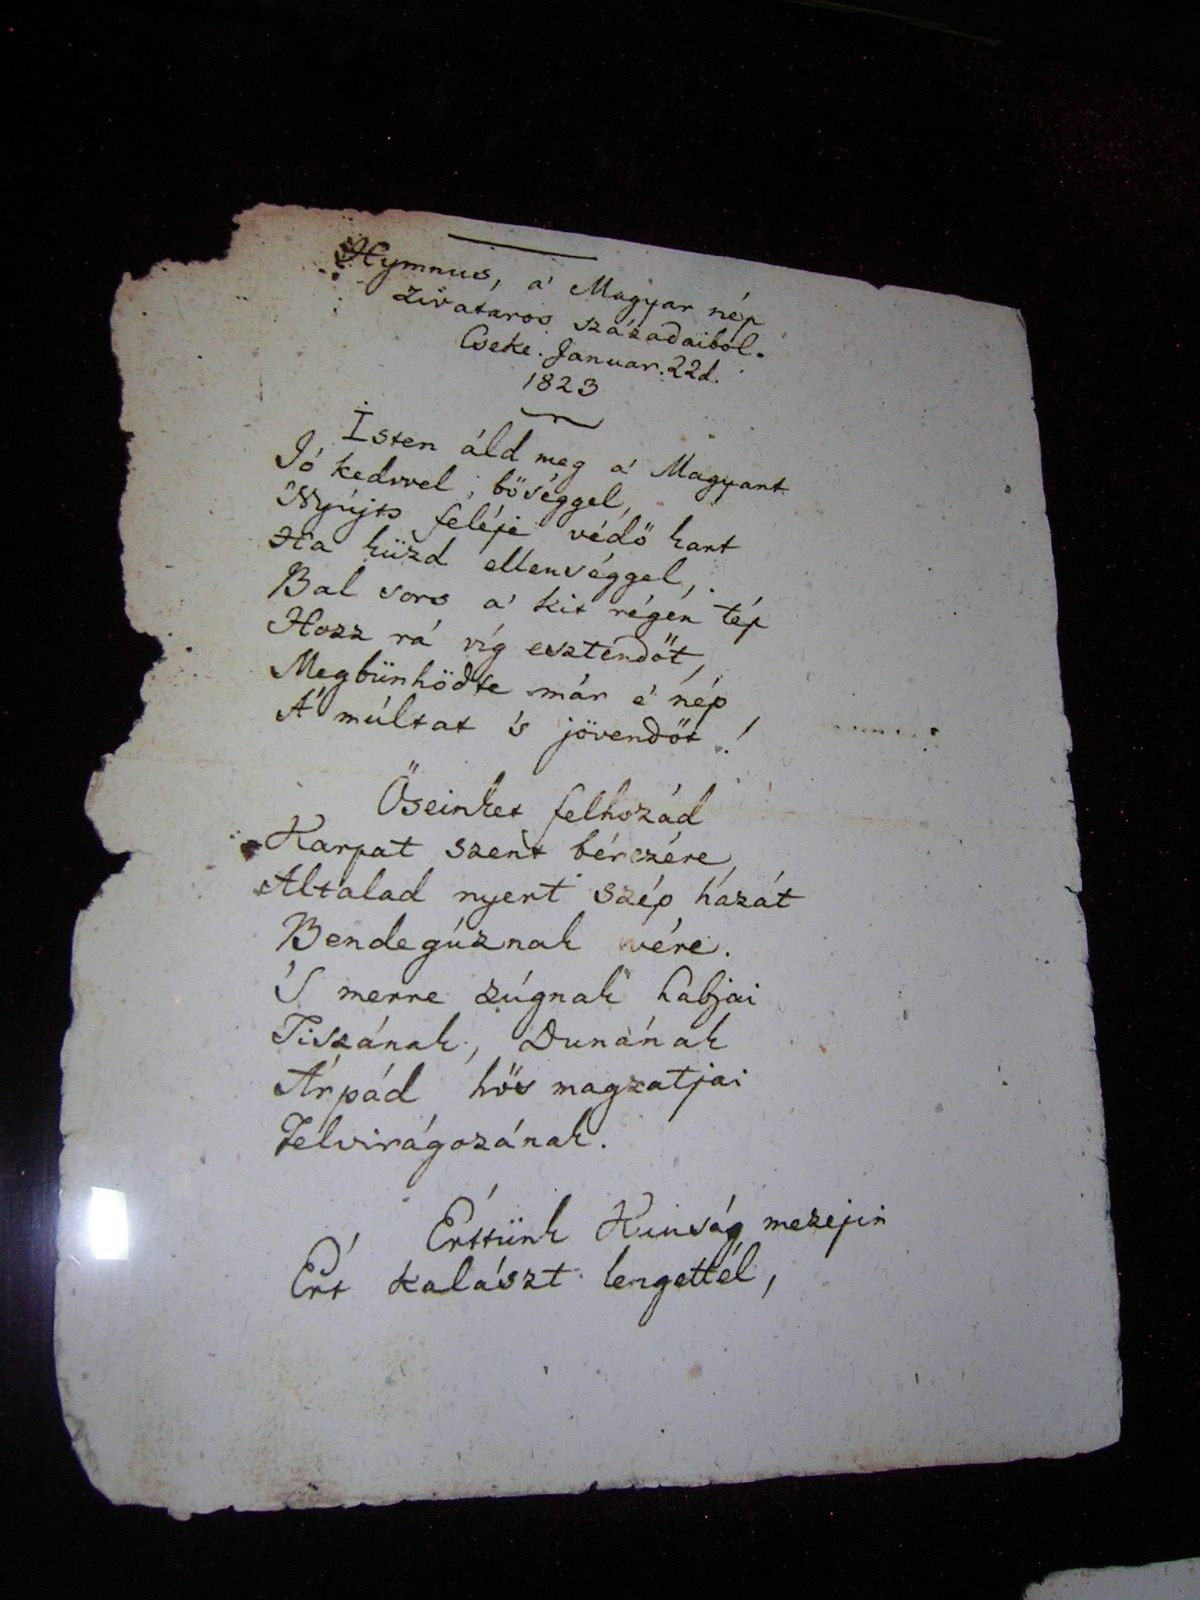 Hymnus, a' Magyar nép
zivataros századaiból.
Cseke. Januar. 22d.
1823
Isten áld meg a' Magyart
Jó kedvvel, bőséggel,
Nyújts feléje védő kart
Ha küzd ellenséggel,
Bal sors a' kit régen tép
Hozz rá víg esztendőt,
Megbünhödte már e' nép
A' múltat 's jövendőt!
Őseinket felhozád
Karpat szent bérczére,
Altalad nyert szép hazát
Bendegúznak vére.
'S merre zúgnak habjai
Tiszának, Dunának
Árpád hős magzatjai
Felvirágozának.
Értünk Kunság mezejin
Ért kalászt lengettél,